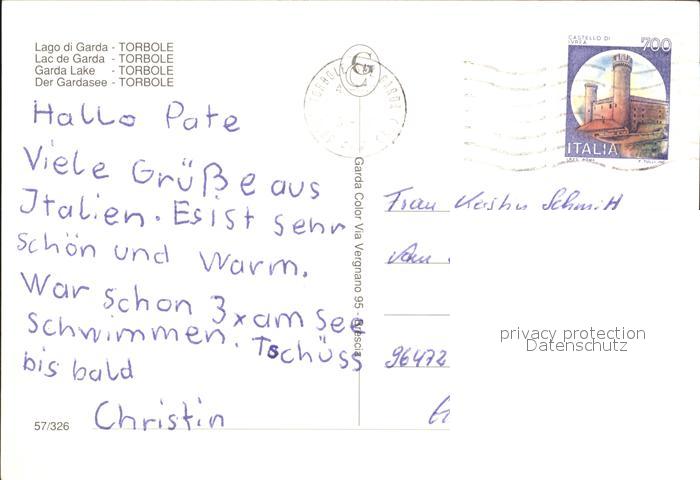 Lago di Garda - TORBOLE
Lac de Garda - TORBOLE
Garda Lake - TORBOLE
Der Gardasee - TORBOLE
Hallo Pate
Viele Grüße aus
Italien. Es ist sehr
schön und warm.
War schon 3x am See
schwimmen. Tschüss
bis bald
Christin
57/326
Garda Color Via Vergnano 95 - Brescia
CASTELLO DI
IVREA
700
ITALIA
Frau Schmitt
96472
privacy protection
Datenschutz